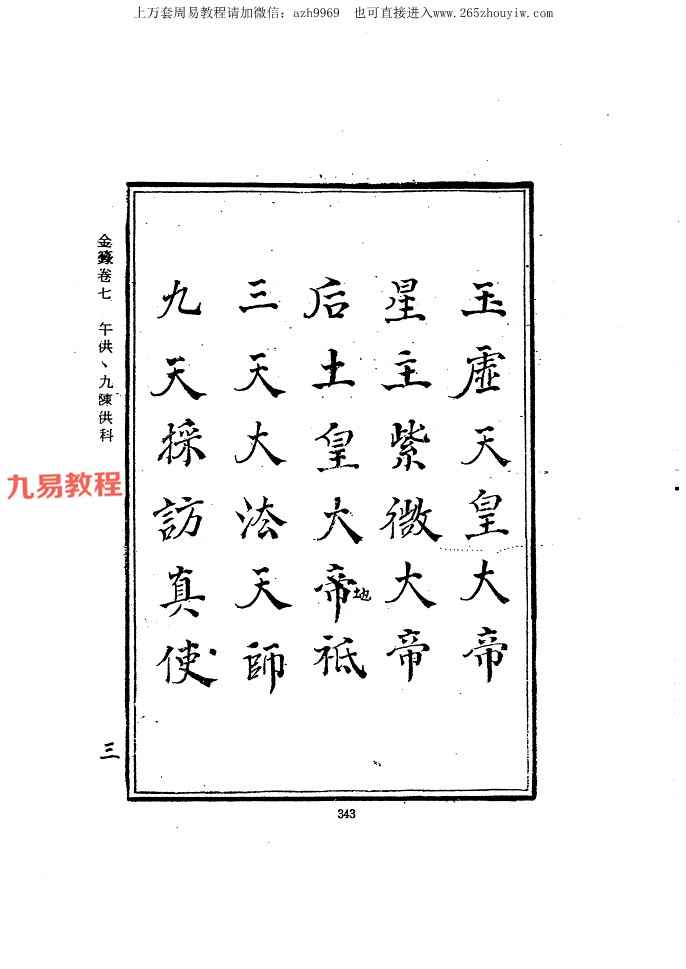 上万套周易教程请加微信：azh9969 也可直接进入www.265zhouyiw.com
玉虛天皇大帝
星主紫微大帝
后土皇大帝祗
地
三天大法天師
九天採訪真使
金籙卷七 午供、九陳供科
九易教程
三
343